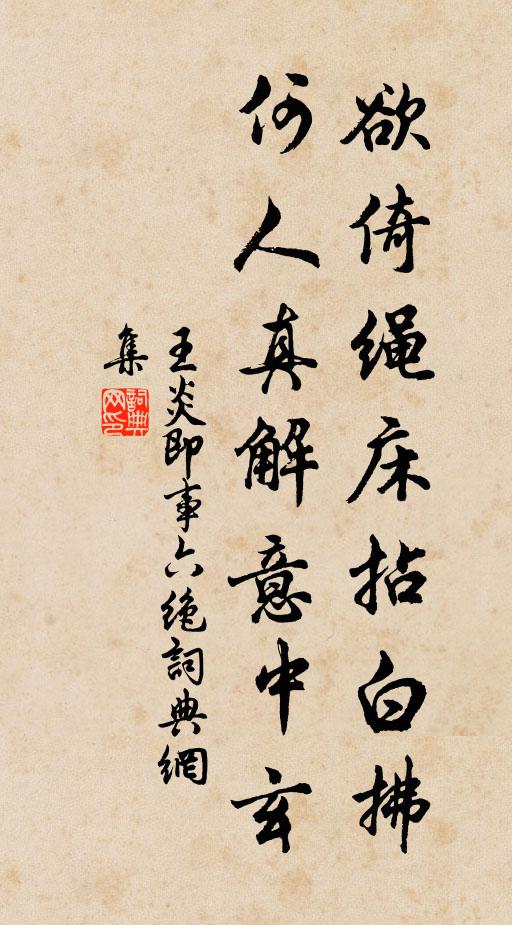 欲倚绳床拈白拂
何人真解意中玄
王炎即事六绝詞典網
集
詞典網印